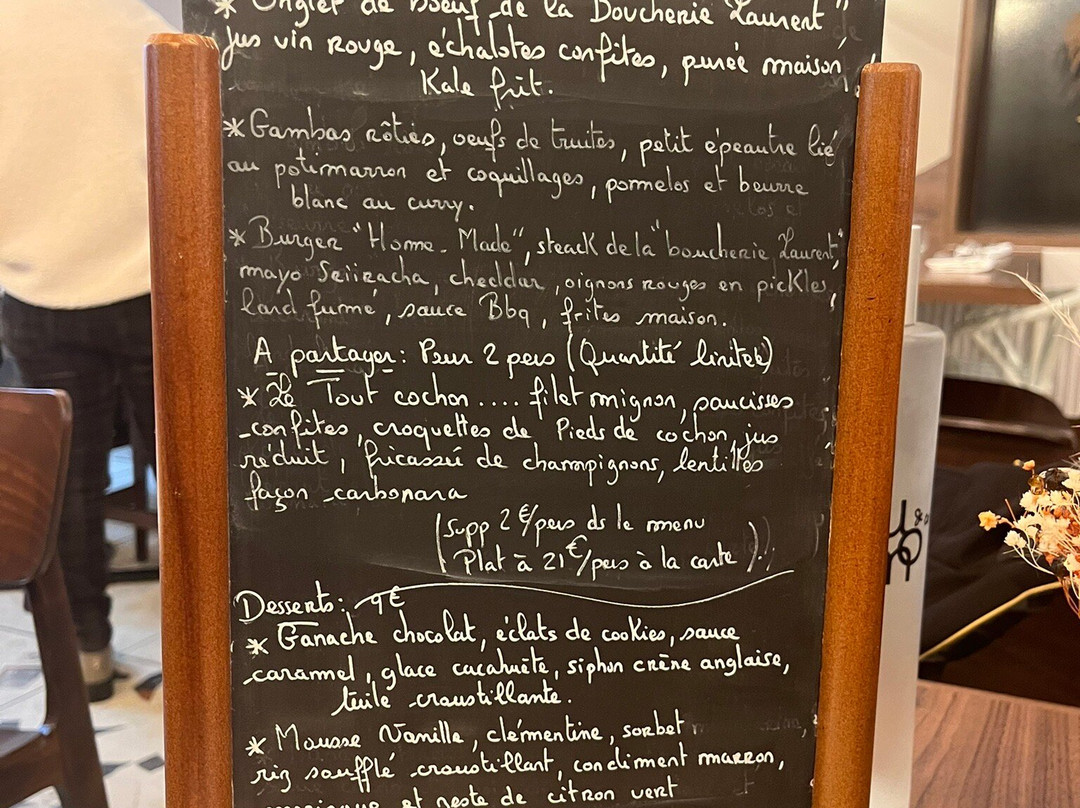 * Onglet de Boeuf de la Boucherie Laurent"
jus vin rouge, échalotes confites, purée maison,
Kale frit.
* Gambas rôties, oeufs de truites, petit épeautre lié
au potimarron et coquillages, pormelos et beurre
blanc au curry.
* Burger "Home-Made", steack de la "boucherie Laurent",
mayo Sriiracha, cheddar, oignons rouges en pickles,
lard fumé, sauce Bbq, frites maison.
A partager: Pour 2 pers (Quantité limitée)
* Le Tout cochon.... filet mignon, saucisses
confites, croquettes de Pieds de cochon, jus
réduit, fricassée de champignons, lentilles
façon carbonara
(supp 2€/pers ds le menu
Plat à 21€/pers à la carte)
Desserts: 9€
* Ganache chocolat, éclats de cookies, sauce
caramel, glace cacahuète, siphon crène anglaise,
tuile croustillante.
* Mousse Vanille, clémentine, sorbet
riz soufflé croustillant, condiment marron,
et zeste de citron vert